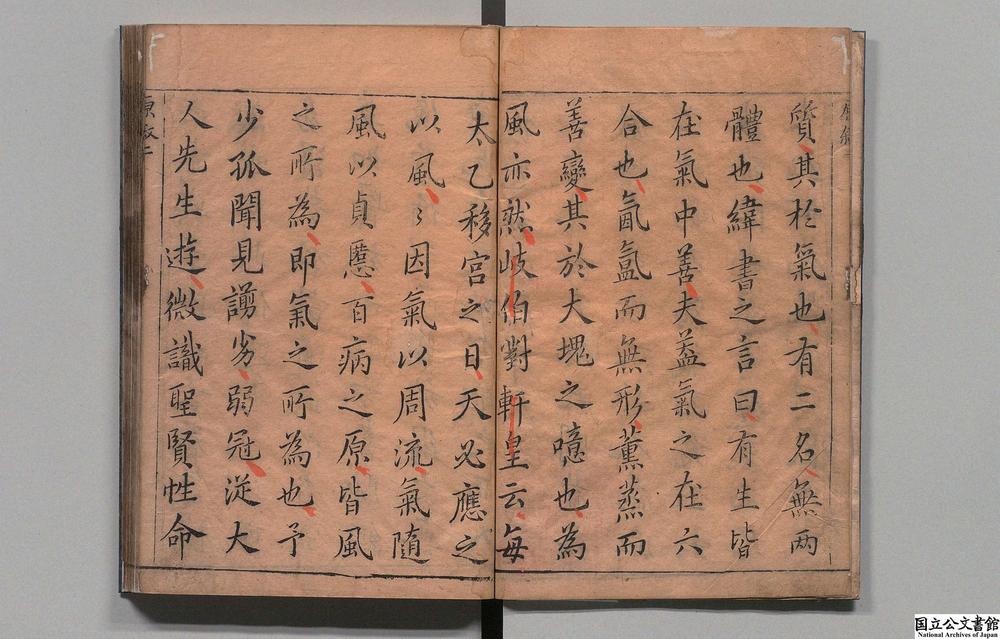 質其於氣也有二名無两
體也緯書之言曰有生皆
在氣中善夫葢氣之在六
合也氤氲而無形薰蒸而
善變其於大塊之噫也為
風亦然岐伯對軒皇云每
太乙移宮之日天必應之
以風〻因氣以周流氣隨
風以貞慝百病之原皆風
之所為即氣之所為也予
少孤聞見謭劣弱冠從大
人先生遊微識聖賢性命
国立公文書館
National Archives of Japan